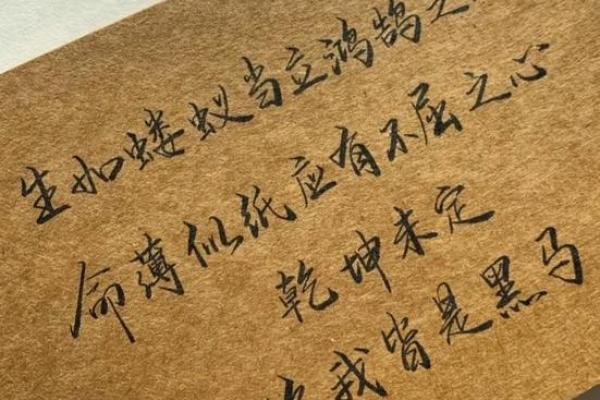 生如蝼蚁当立鸿鹄之
命薄似纸应有不屈之心
乾坤未定
我皆是黑马